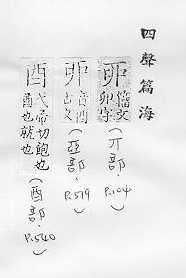 四聲篇海
戼
籀文
卯字
(丌部.
P.104)
丣
音酉
古文
(亞部.
P.519)
酉
弋帚切飽也
就也
(酉部.
P.540)